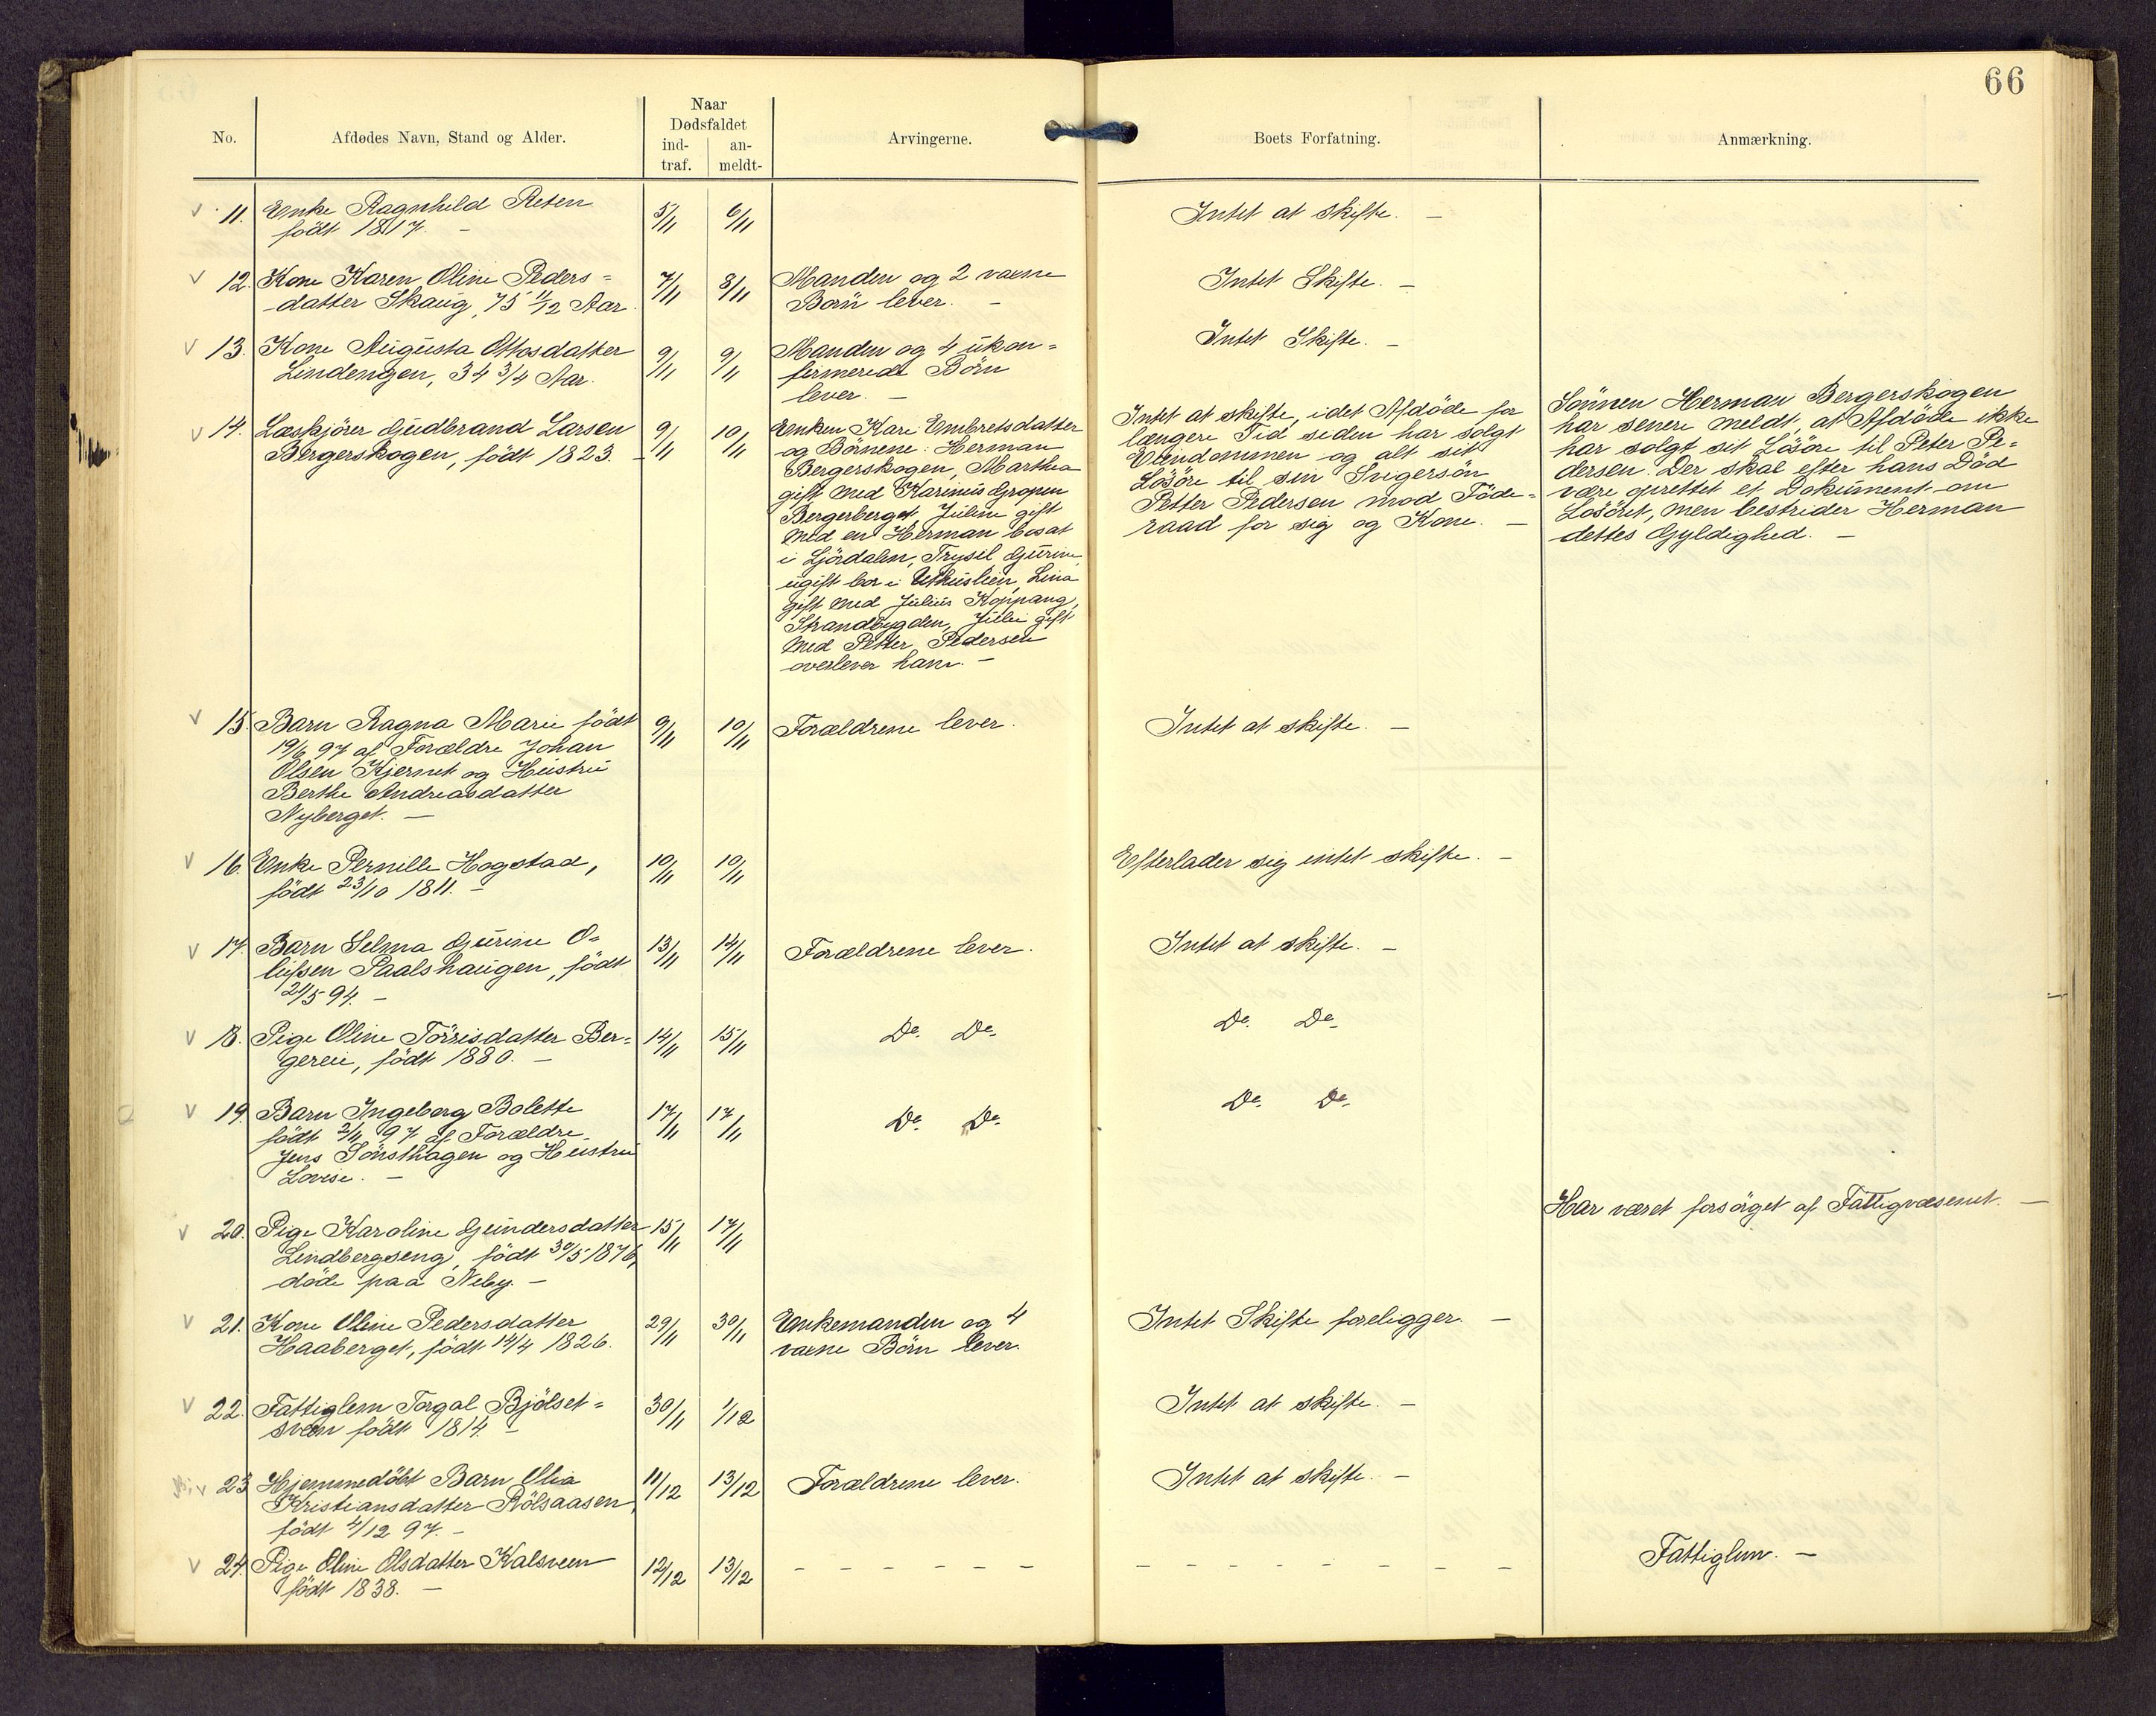 66
No.
Afdødes Navn, Stand og Alder.
Naar
Dødsfaldet
ind-
traf.
an-
meldt-
Arvingerne.
Boets Forfatning.
Anmærkning.
11. Enke Ragnhild Reten 5/11 6/11 Intet at skifte. -
født 1817. -
12. Kone Karen Oline Peders= 7/11 8/11 Manden og 2 vaxne Intet Skifte. -
datter Skaug, 75 11/12 Aar. Børn lever. -
13. Kone Augusta Ottosdatter 9/11 9/11 Manden og 4 ukon= Intet Skifte. -
Lindengen, 34 3/4 Aar. firmerede Børn
lever. -
14. Læskjører Gudbrand Larsen 9/11 10/11
Bergerskogen, født 1823. -
Enken Kari Embretsdatter
og Børnene: Herman
Bergerskogen, Marthea
gift med Karinus Gropen
Bergerberget, Juline gift
med en Herman bosat
i Ljørdalen, Trysil, Gurine
ugift bor i Uthuslien, Lina
gift med Julius Koppang,
Strandbygden, Julie gift
med Petter Pedersen
overlever ham. -
Intet at skifte, idet Afdøde for
længere Tid siden har solgt
Eiendommen og alt sit
Løsøre til sin Svigersøn
Petter Pedersen mod Føde=
raad for sig og Kone. -
Sønnen Herman Bergerskogen
har senere meldt, at Afdøde ikke
har solgt sit Løsøre til Peter Pe=
dersen. Der skal efter hans Død
være oprettet et Dokument om
Løsøret, men bestrider Herman
dettes Gyldighed. -
15. Barn Ragna Marie født 9/11 10/11 Forældrene lever. Intet at skifte. -
19/6 97 af Forældre Johan
Olsen Kjernet og Hustru
Berthe Andreasdatter
Nyberget. -
16. Enke Pernille Hogstad, 10/11 10/11 Efterlader sig intet skifte. -
født 23/10 1811. -
17. Barn Selma Gurine O= 13/11 14/11 Forældrene lever. Intet at skifte. -
lufsen Paalshaugen, født
21/5 94. -
18. Pige Oline Tørrisdatter Ber= 14/11 15/11 Do. Do. Do. Do.
gereie, født 1880. -
19. Barn Ingeborg Bolette 17/11 17/11 Do. Do. Do. Do.
født 2/11 97 af Forældre
Jens Sønsthagen og Hustru
Lovise. -
20. Pige Karoline Gundersdatter 15/11 17/11 Har været forsørget af Fattigvæsenet. -
Lindbergseng, født 30/5 1876,
døde paa Neby. -
21. Kone Oline Pedersdatter 29/11 30/11 Enkemanden og 4 Intet Skifte foreligger. -
Haaberget, født 14/4 1826. vaxne Børn lever.
22. Fattiglem Torgal Bjølset= 30/11 1/12 Intet at skifte. -
sveen født 1814. -
23. Hjemmedøbt Barn Olia 11/12 13/12 Forældrene lever. Intet at skifte. -
Kristiansdatter Rølsaasen,
født 4/12 97. -
24. Pige Oline Olsdatter Kalsveen 12/12 13/12 - - - - - - - - - - - - - - - Fattiglem. -
født 1838. -